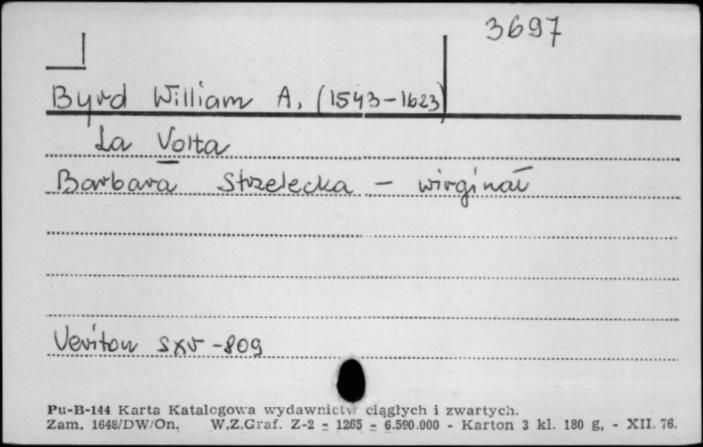 3697
Byrd William A. (1543-1623)
La Volta
Barbara Strzelecka - wirginał
Veriton sxv-809
Pu-B-144 Karta Katalogowa wydawnictw ciągłych i zwartych.
Zam. 1648/DW/On. W.Z.Graf. Z-2 = 1265 = 6.590.000 - Karton 3 kl. 180 g, - XII. 76.